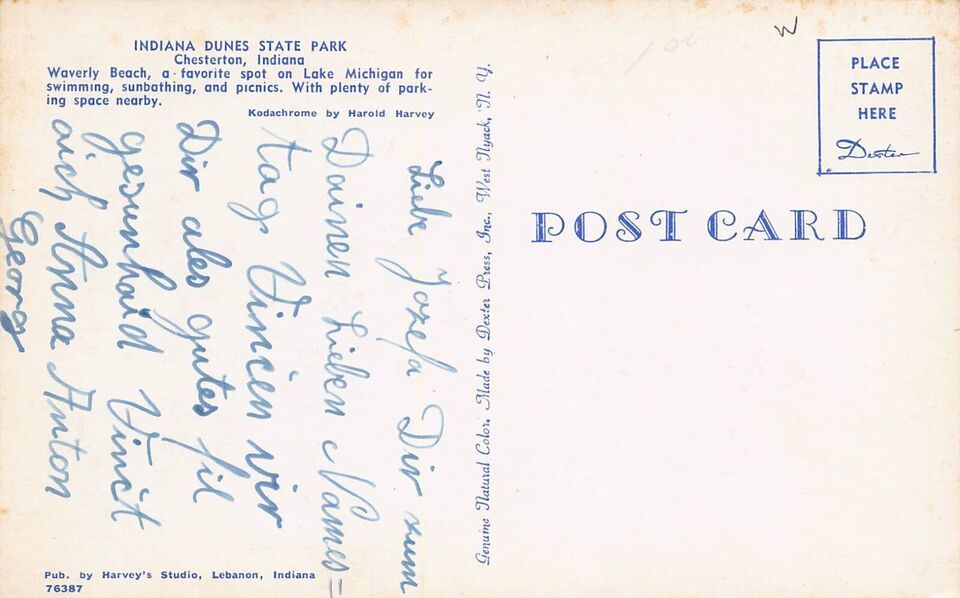 INDIANA DUNES STATE PARK
Chesterton, Indiana
Waverly Beach, a favorite spot on Lake Michigan for
swimming, sunbathing, and picnics. With plenty of park-
ing space nearby.
Kodachrome by Harold Harvey
Liebe Jozefa Dir zum
Deinen Lieben Names=
tag Vincen vir
Dir ales gutes fil
gesunhaid Vincit
aich Anna Anton
Georg
Pub. by Harvey's Studio, Lebanon, Indiana
76387
Genuine Natural Color. Made by Dexter Press, Inc., West Nyack, N. Y.
W
100
PLACE
STAMP
HERE
Dexter
POST CARD